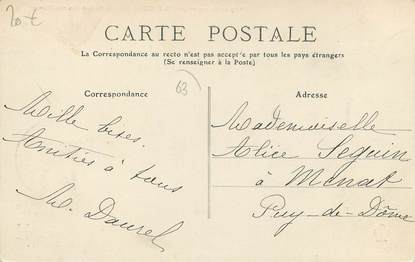 20 €
CARTE POSTALE
La Correspondance au recto n'est pas acceptée par tous les pays étrangers
(Se renseigner à la Poste)
Correspondance
63
Adresse
Mille bises.
Amitiés à tous
M. Daurel
Mademoiselle
Alice Seguin
à Menat
Puy-de-Dôme